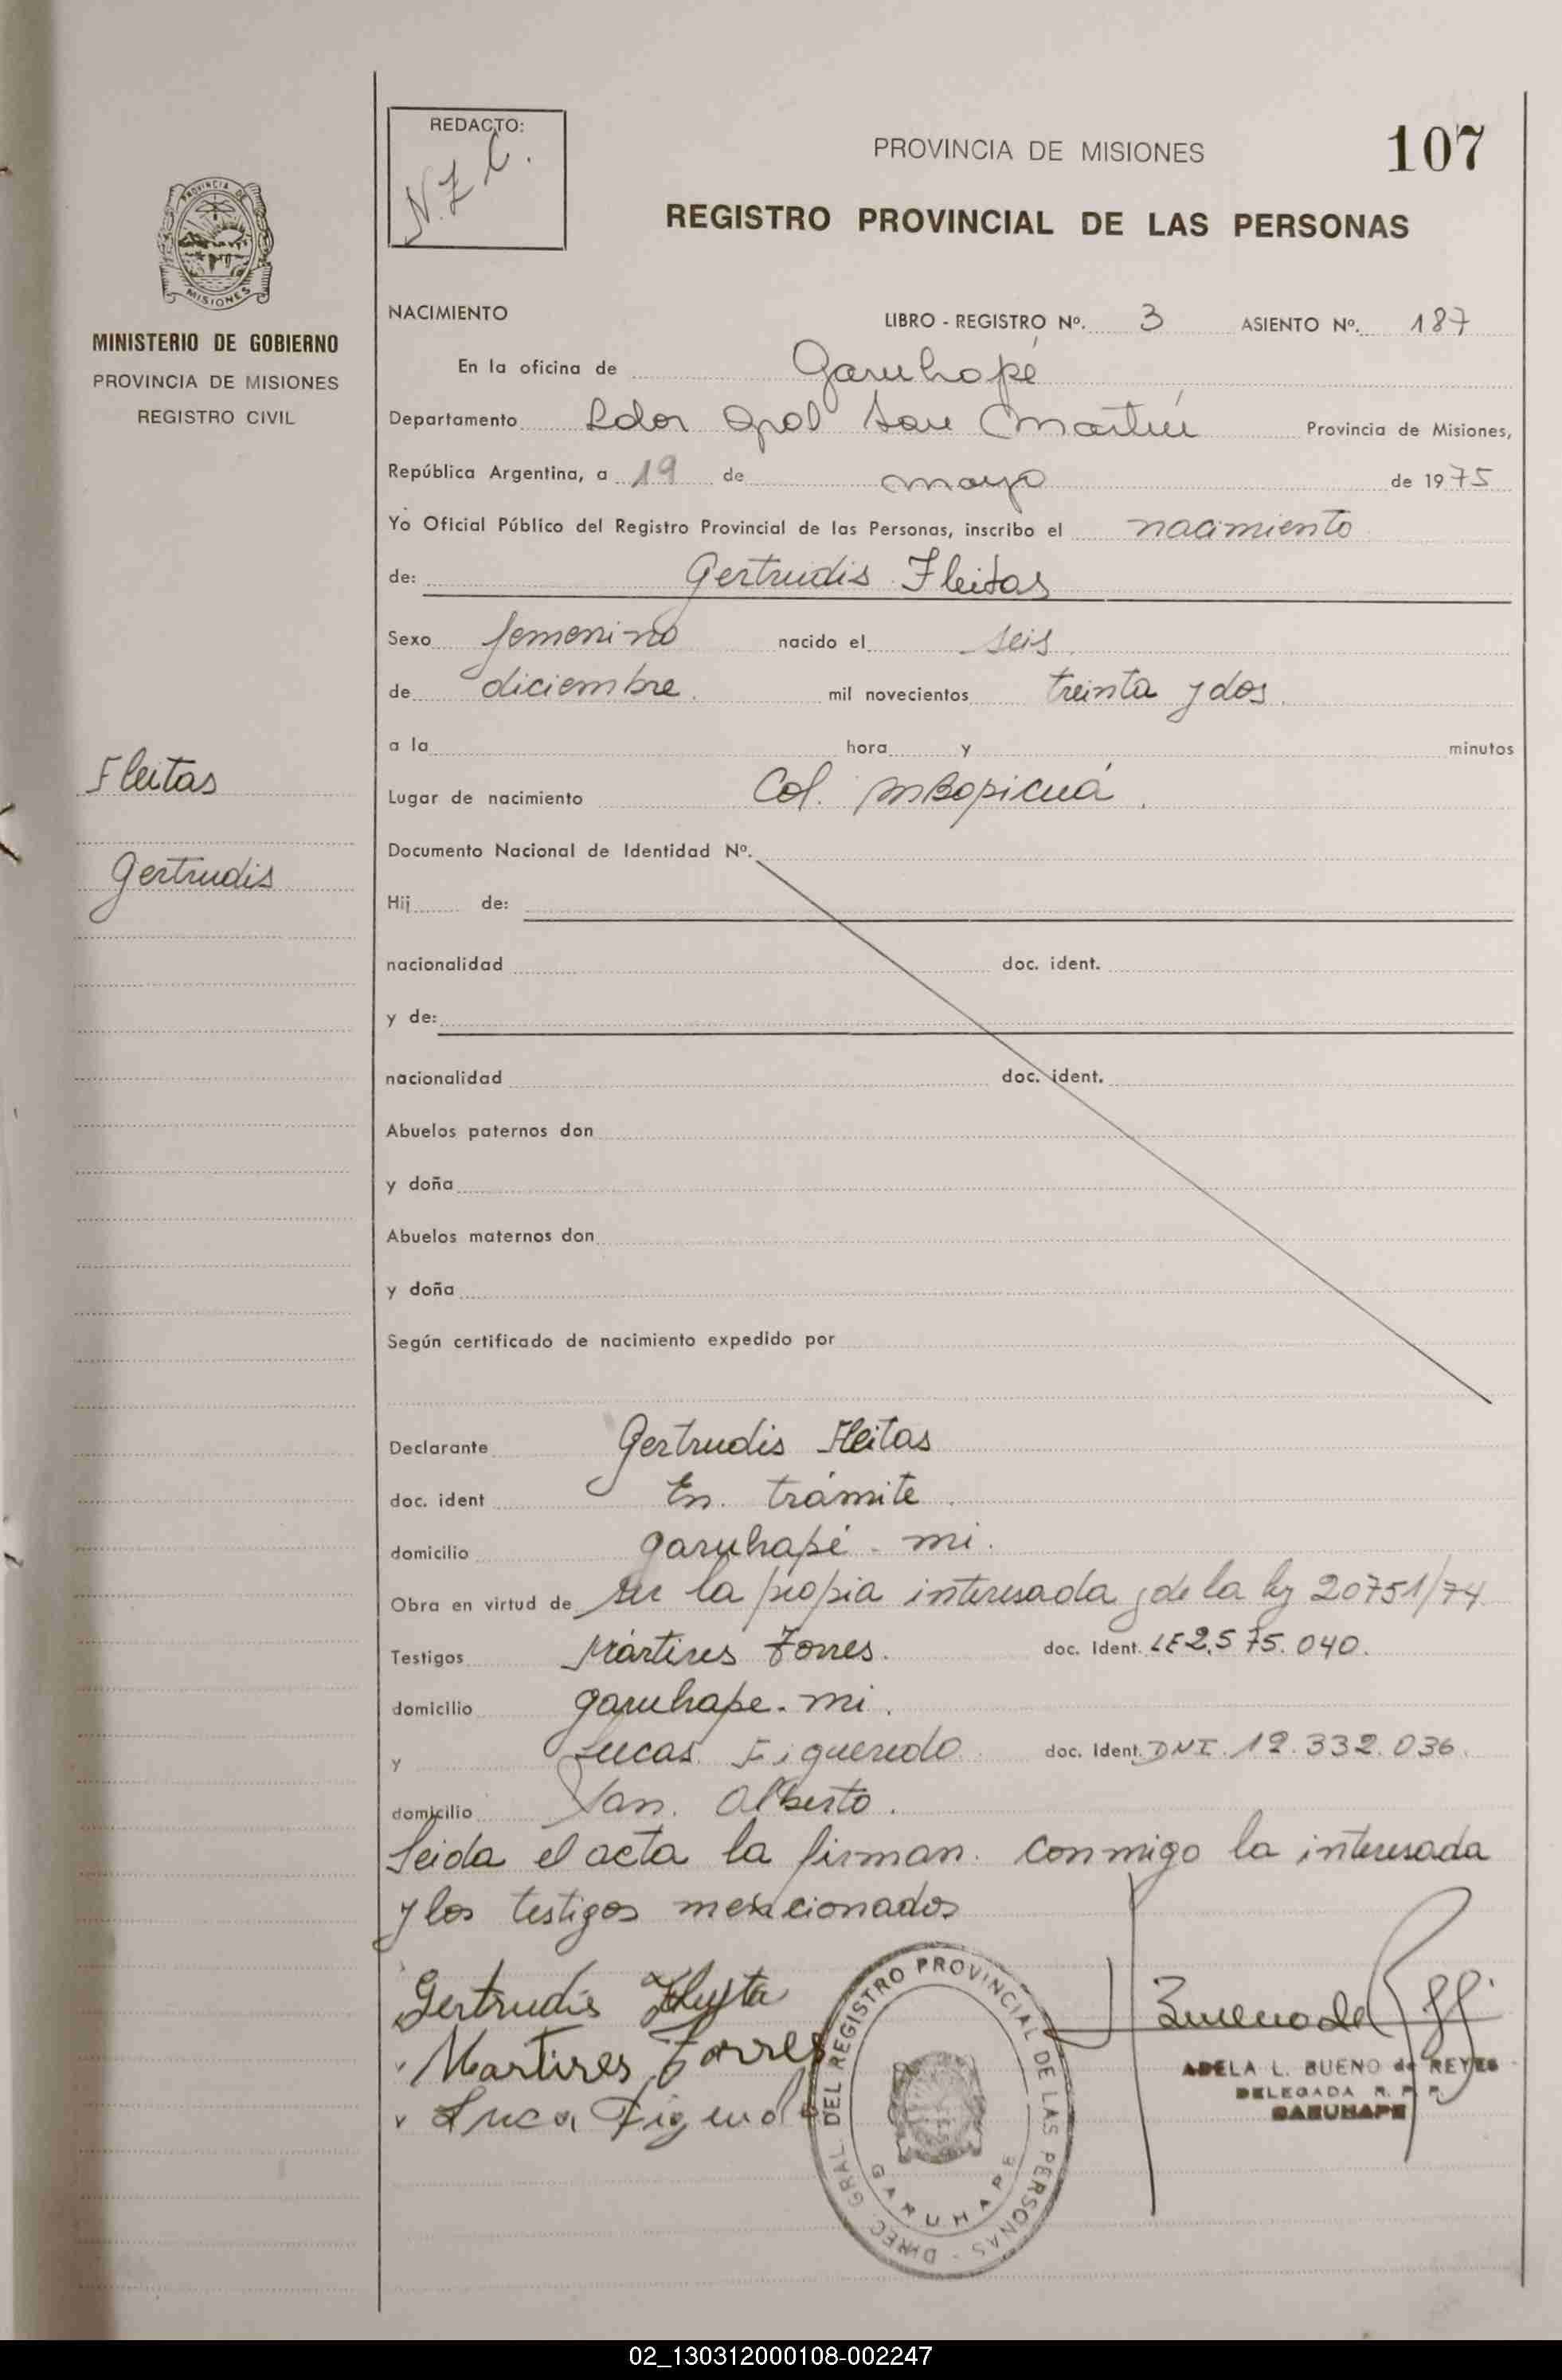 REDACTO:
N.Z.C.
PROVINCIA DE MISIONES
107
REGISTRO PROVINCIAL DE LAS PERSONAS
PROVINCIA DE
MISIONES
MINISTERIO DE GOBIERNO
PROVINCIA DE MISIONES
REGISTRO CIVIL
Fleitas
Gertrudis
NACIMIENTO
LIBRO - REGISTRO Nº. 3 ASIENTO Nº. 187
En la oficina de Garuhapé
Departamento Ldor Gral San Martín Provincia de Misiones,
República Argentina, a 19 de mayo de 1975
Yo Oficial Público del Registro Provincial de las Personas, inscribo el nacimiento
de: Gertrudis Fleitas
Sexo femenino nacido el seis
de diciembre mil novecientos treinta y dos
a la hora y minutos
Lugar de nacimiento Col. Mbopicuá.
Documento Nacional de Identidad Nº.
Hij de:
nacionalidad doc. ident.
y de:
nacionalidad doc. ident.
Abuelos paternos don
y doña
Abuelos maternos don
y doña
Según certificado de nacimiento expedido por
Declarante Gertrudis Fleitas
doc. ident En trámite.
domicilio Garuhapé - mi.
Obra en virtud de ser la propia interesada y de la ley 20751/74
Testigos Mártires Torres. doc. Ident. LE 2.575.040.
domicilio Garuhape - mi.
y Lucas Figueredo doc. Ident. DNI 12.332.036.
domicilio San Alberto.
Leida el acta la firman conmigo la interesada
y los testigos mencionados
Gertrudis
Martires Torres
Luca
DIREC. GRAL. DEL REGISTRO PROVINCIAL DE LAS PERSONAS -
GARUHAPE
Bueno de
ADELA L. BUENO de REYES
DELEGADA R. P. P.
GARUHAPE
02_130312000108-002247